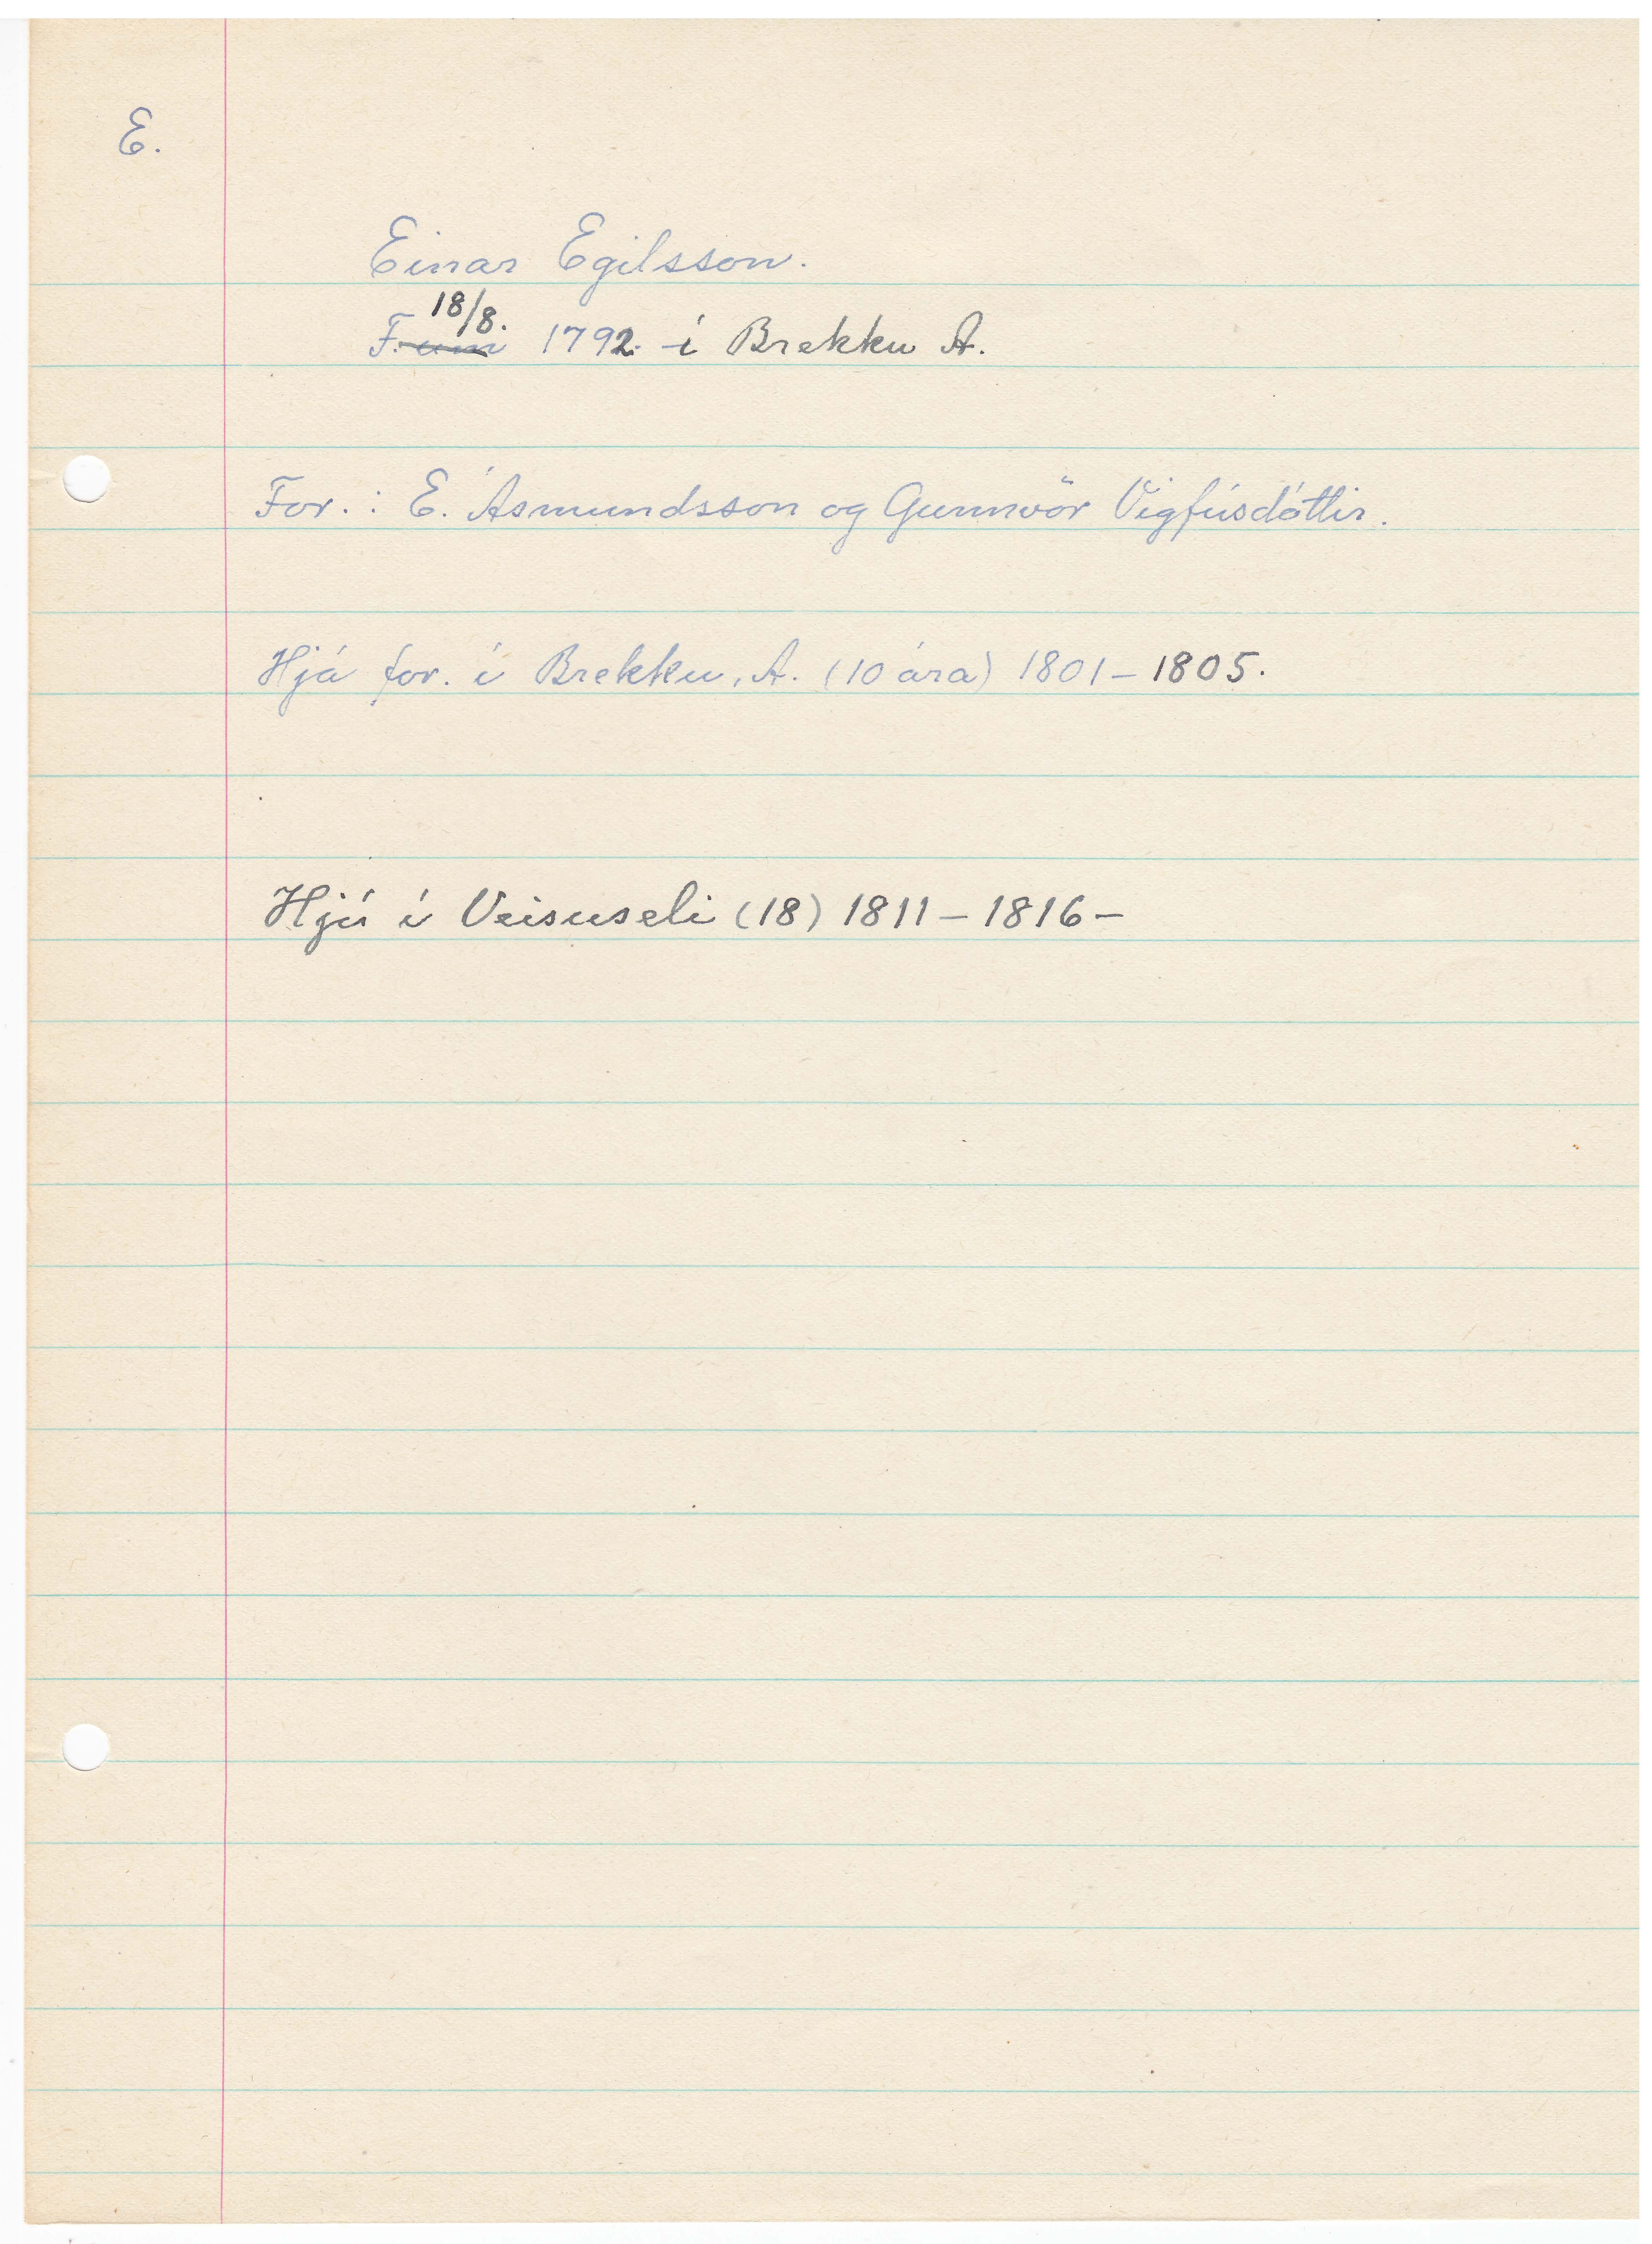 E.
Einar Egilsson.
18/8.
F. um 1792. í Brekku A.
For.: E. Ásmundsson og Gunnvör Vigfúsdóttir.
Hjá for. í Brekku, A. (10 ára) 1801 - 1805.
Hjú í Veisuseli (18) 1811 - 1816 -